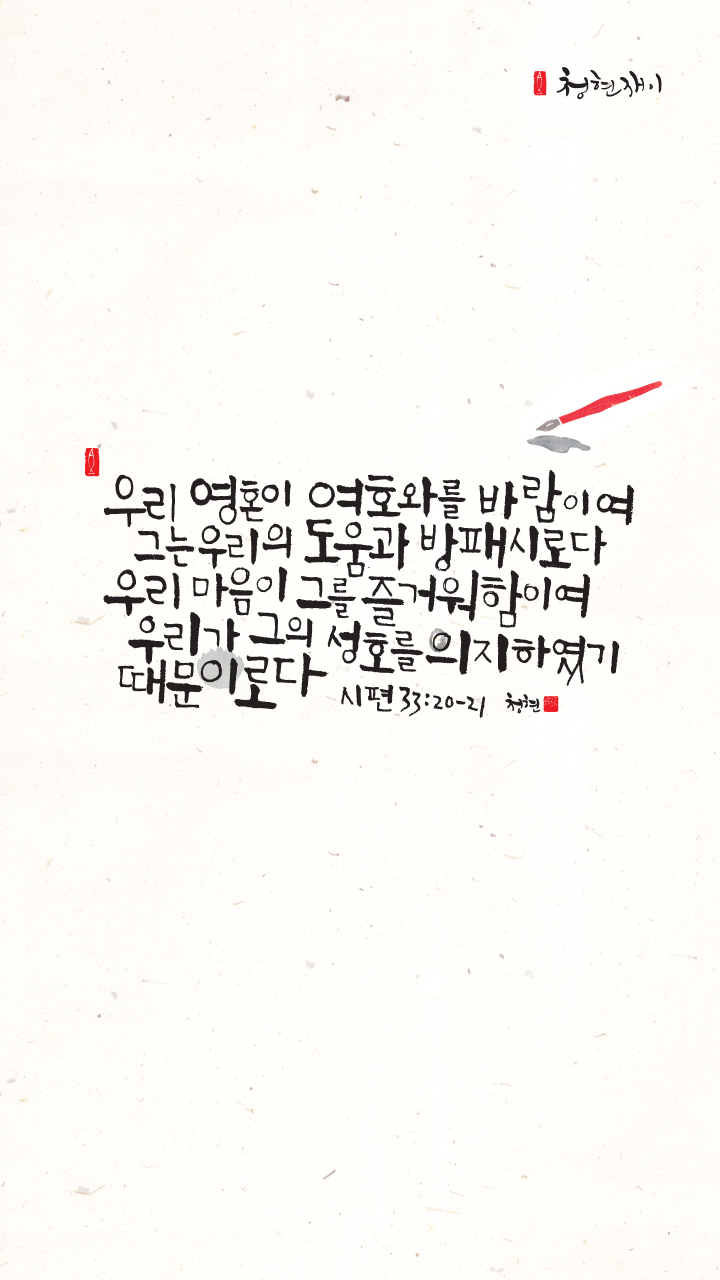 청현재이
우리 영혼이 여호와를 바람이여
그는 우리의 도움과 방패시로다
우리 마음이 그를 즐거워함이여
우리가 그의 성호를 의지하였기
때문이로다 시편 33:20-21 청현